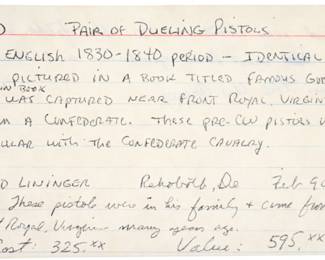 PAIR OF DUELING PISTOLS
ENGLISH 1830-1840 PERIOD - IDENTICAL
PICTURED IN A BOOK TITLED FAMOUS
IN BOOK
WAS CAPTURED NEAR FRONT ROYAL, VIRGIN
M A CONFEDERATE. THESE PRE-CW PISTOLS
ULAR WITH THE CONFEDERATE CAVALRY.
D LININGER Rehoboth, De Feb 9
These pistols were in his family & came from
Royal, Virginia many years ago.
Cost: 325.xx Value: 595.xx